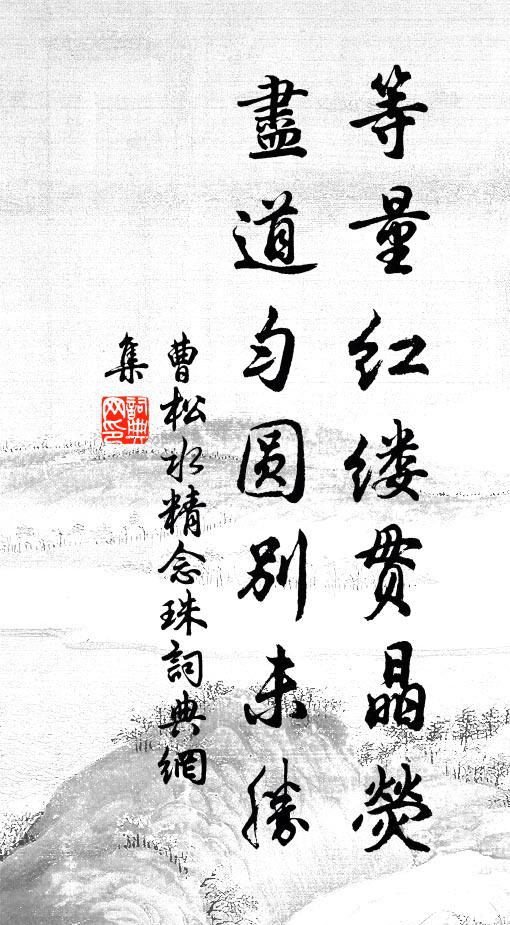 等量红缕贯晶熒
盡道匀圆别未勝
曹松水精念珠詞典網
集
詞典网印